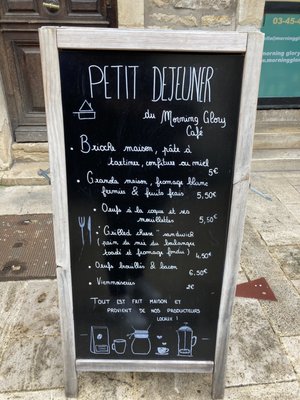 03-45
ite//morningglor
morning glor
PETIT DEJEUNER
du Morning Glory
Café
• Brioche maison, pâte à
tartiner, confiture ou miel
5€
• Granola maison, fromage blanc
fermier & fruits frais 5,50€
• Oeufs à la coque et ses
mouillettes 5,50€
• "Grilled cheese" sandwich
(pain du mie du boulanger
toasté et fromage fondu) 4.50€
• Oeufs brouillés & bacon
6.50€
• Viennoiseries 2€
TOUT EST FAIT MAISON ET
PROVIENT DE NOS PRODUCTEURS
LOCAUX!